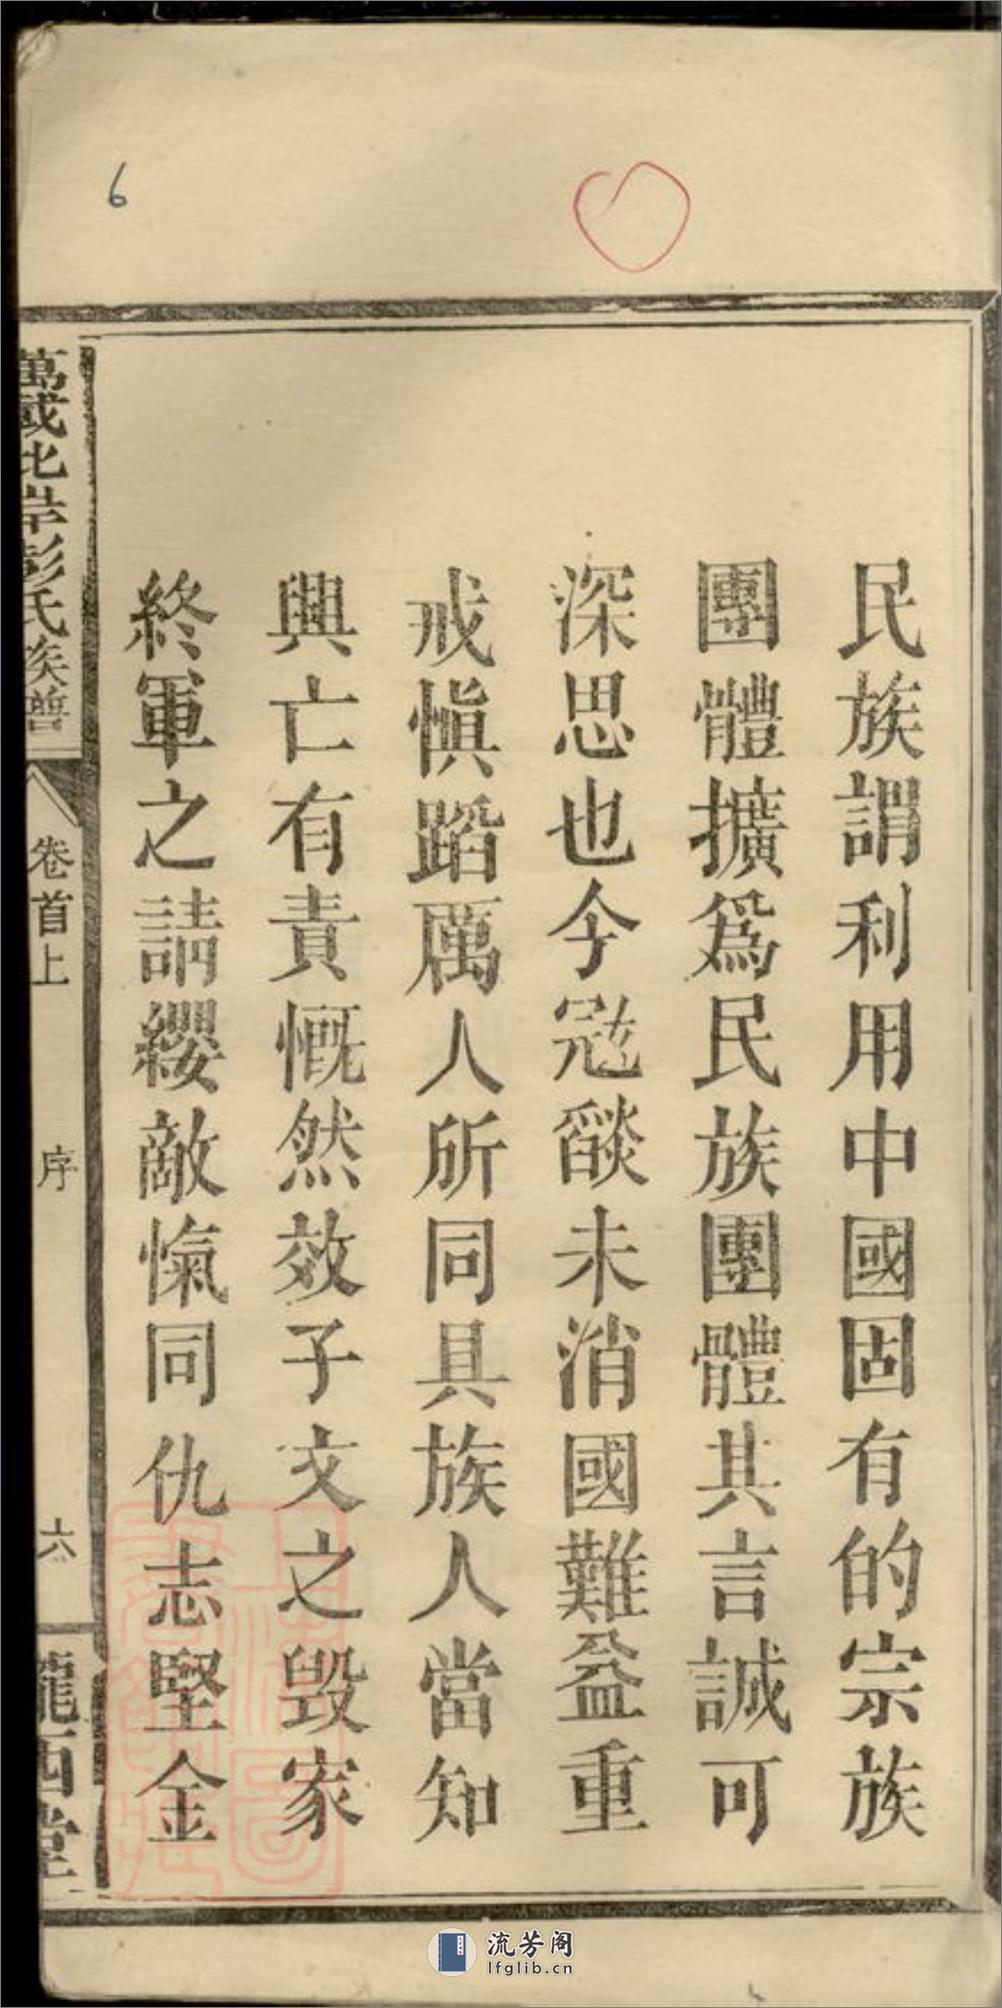 民族謂利用中國固有的宗族
團體擴爲民族團體其言誠可
深思也今冦燄未消國難益重
戒愼蹈厲人所同具族人當知
興亡有責慨然效子文之毁家
終軍之請纓敵愾同仇志堅金
萬載北岸彭氏族譜
卷首上
序
六
隴西堂
6
流芳阁
lfglib.cn